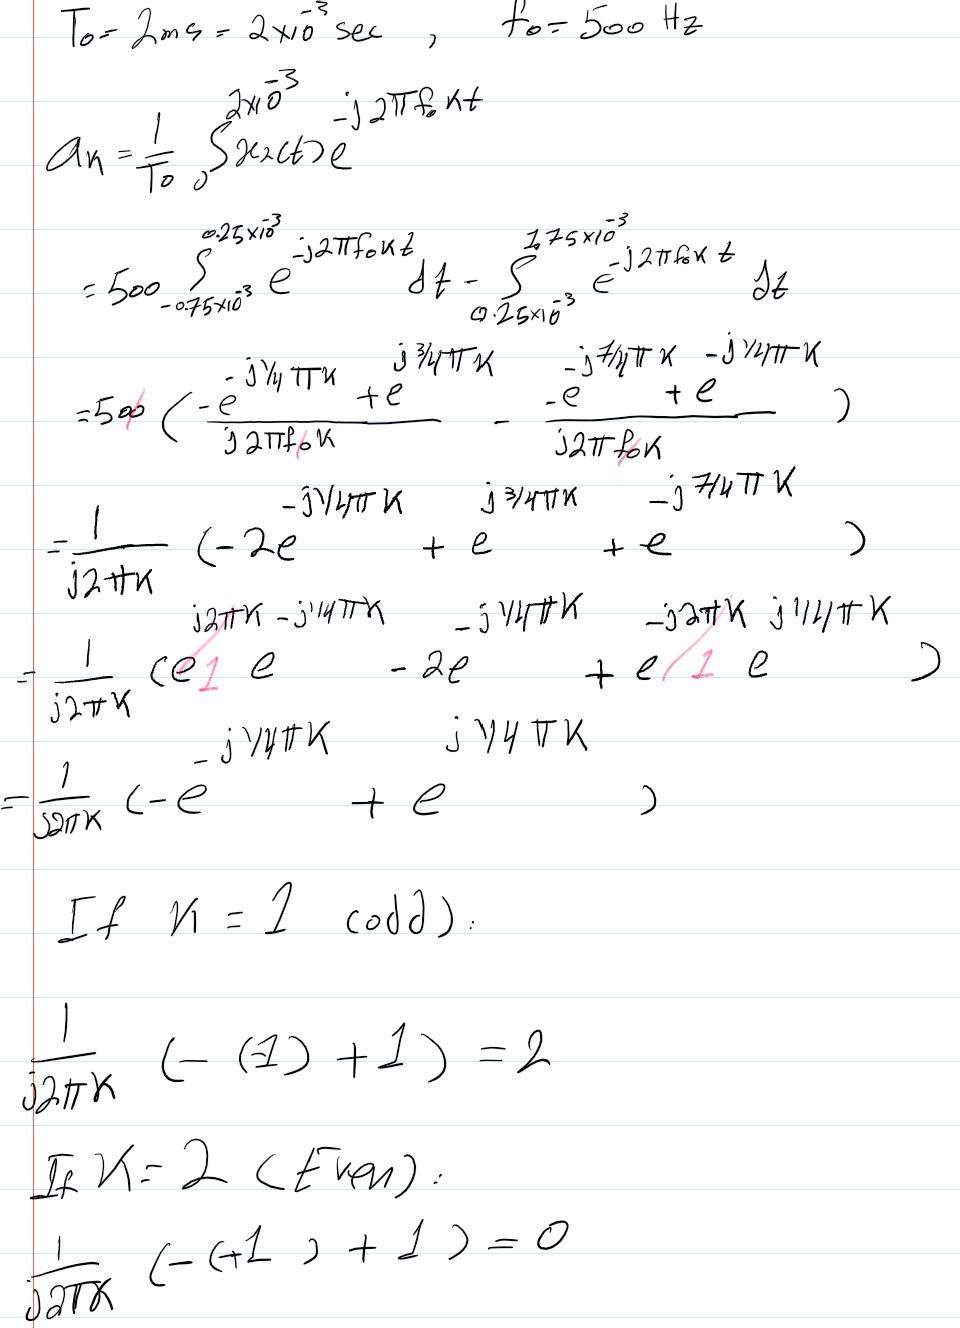 T₀ = 2ms = 2×10⁻³ sec , f₀ = 500 Hz
aₖ = 1/T₀ ₀∫^(2×10⁻³) x₂(t) e^(-j2πf₀kt)
= 500 ∫_(-0.75×10⁻³)^(0.25×10⁻³) e^(-j2πf₀kt) dt - ∫_(0.25×10⁻³)^(1.75×10⁻³) e^(-j2πf₀kt) dt
= 500 ( (-e^(-j1/4πk) + e^(j3/4πk)) / (j2πf₀k) - (-e^(-j7/4πk) + e^(-j1/4πk)) / (j2πf₀k) )
= 1/(j2πk) (-2e^(-j1/4πk) + e^(j3/4πk) + e^(-j7/4πk) )
= 1/(j2πk) (e^(j2πk) 1 e^(-j1/4πk) - 2e^(-j1/4πk) + e^(-j2πk) 1 e^(j1/4πk) )
= 1/(j2πk) (-e^(-j1/4πk) + e^(j1/4πk) )
If k = 1 (odd):
1/(j2πk) (- (-1) + 1) = 2
If k = 2 (Even):
1/(j2πk) (-(+1) + 1) = 0